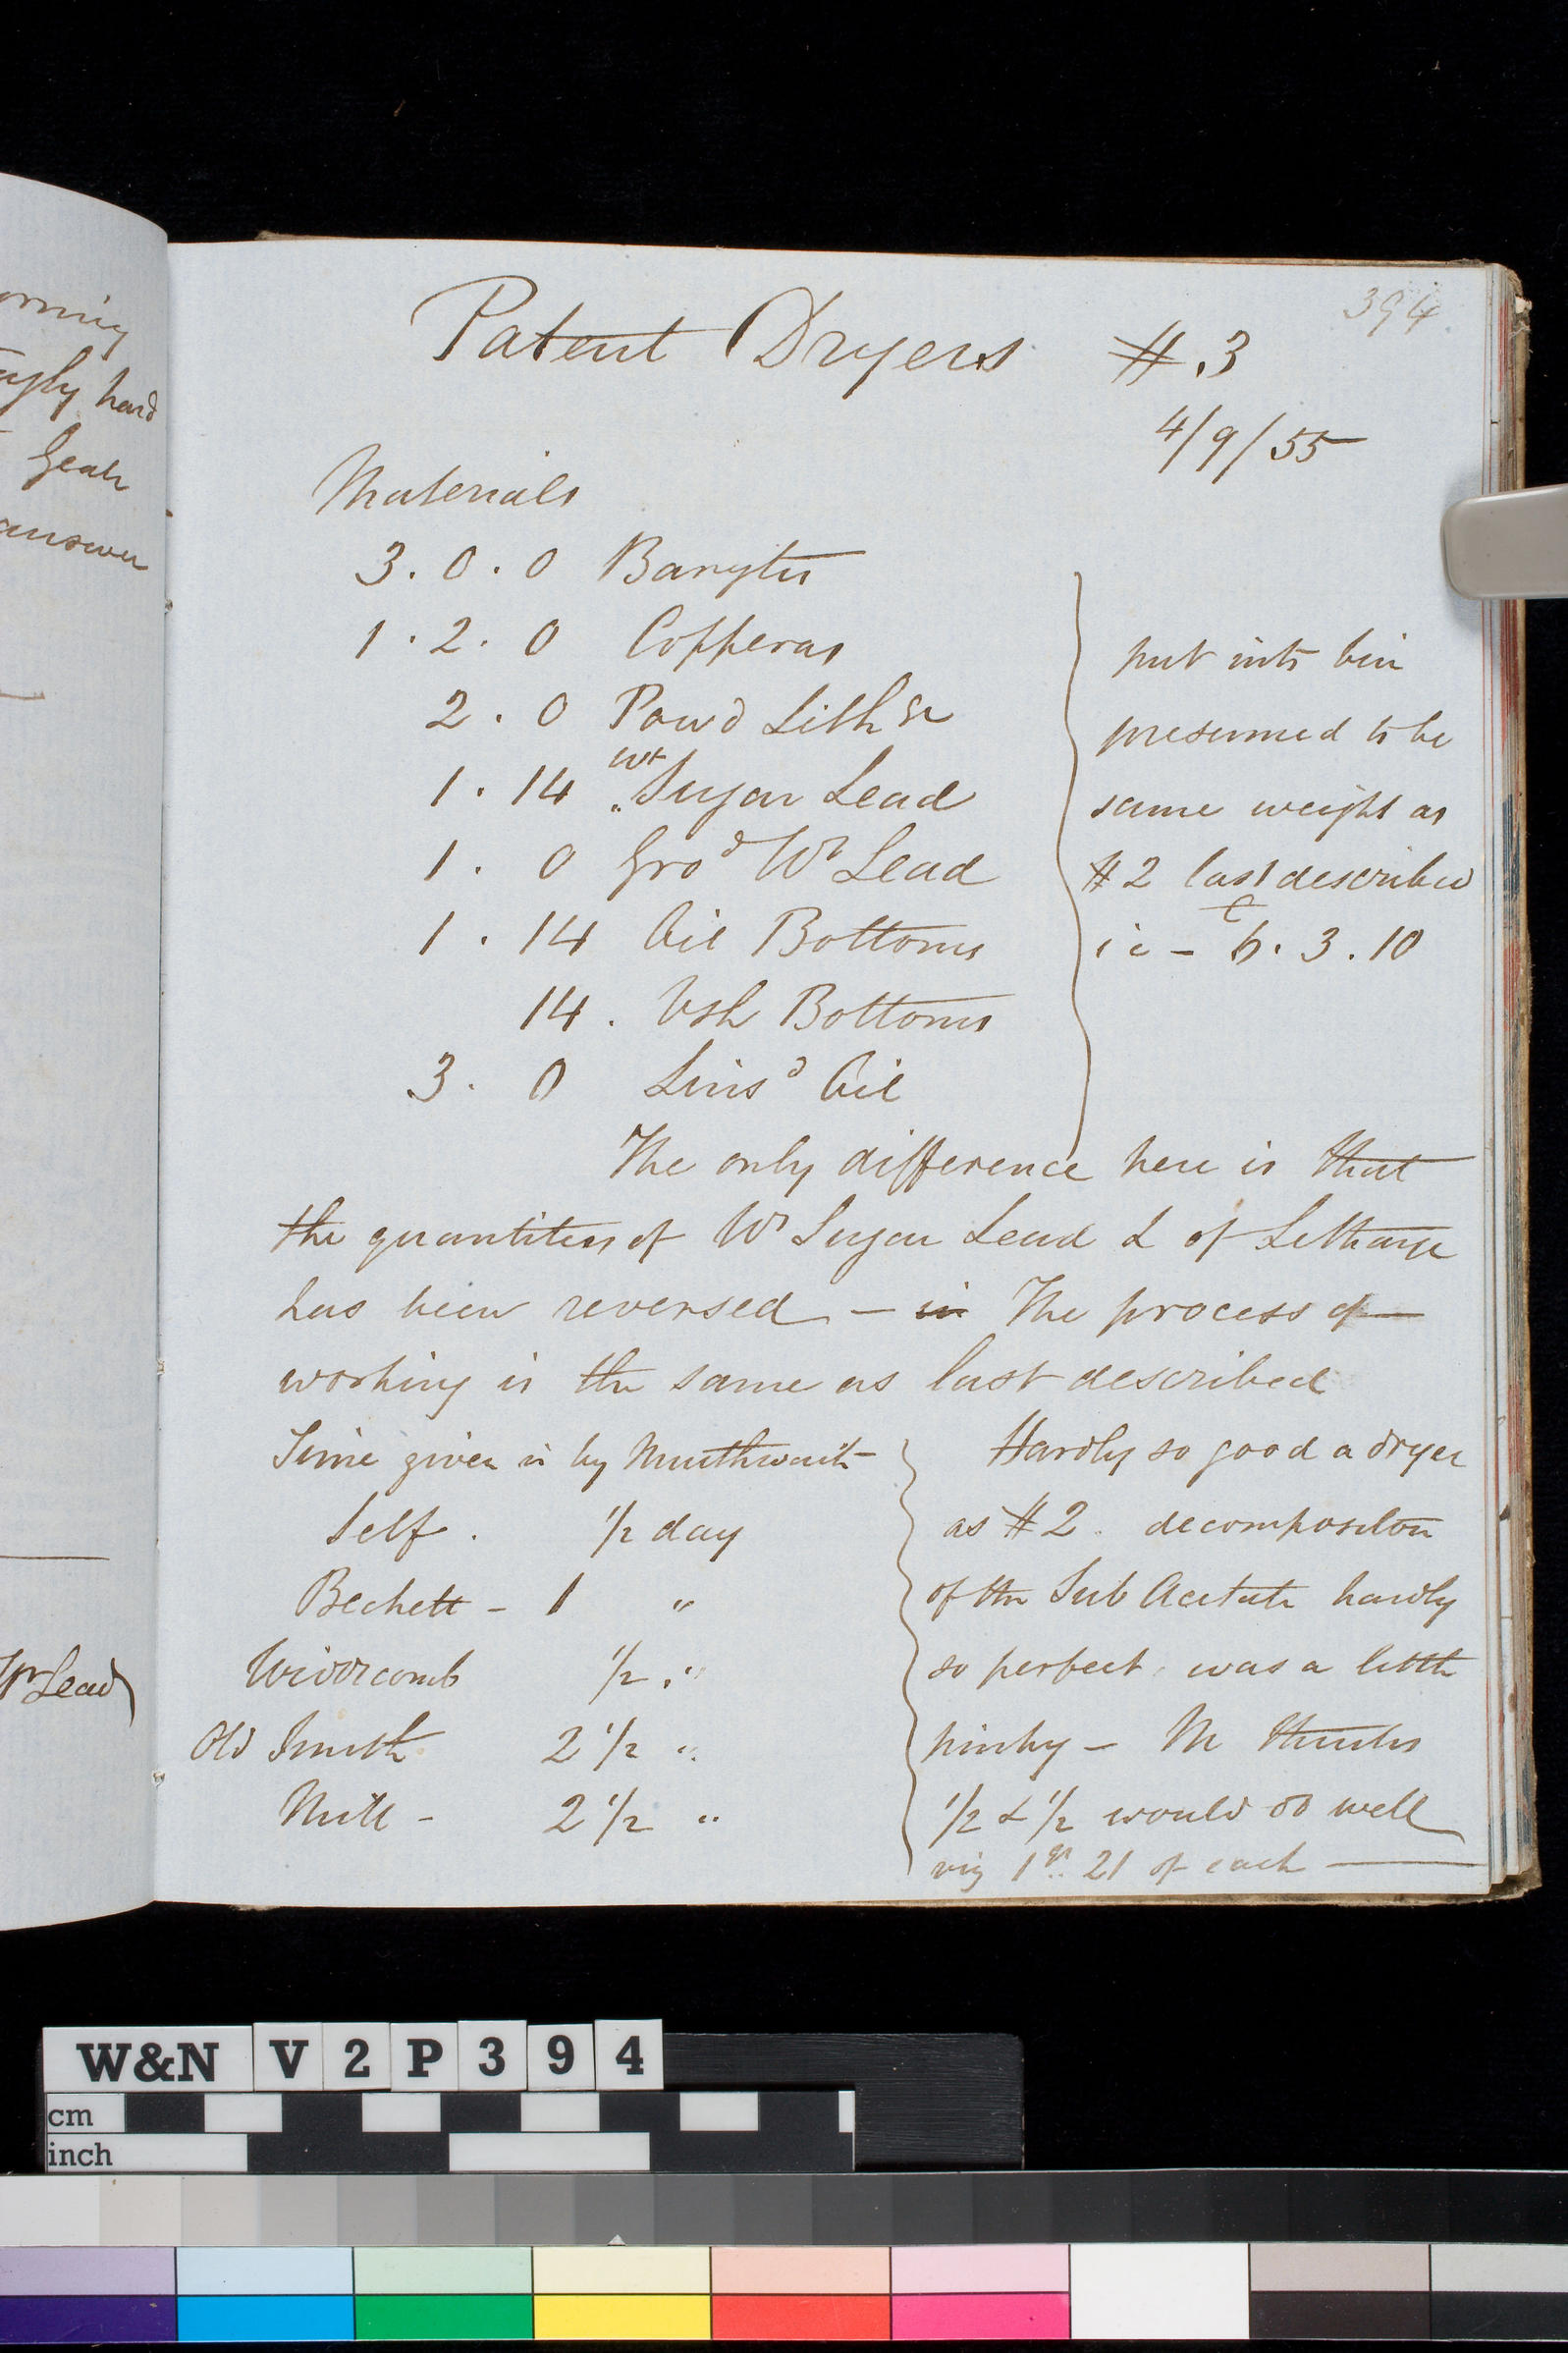 orning
hard
Geale
answer
Wt Lead
394
Patent Dryers #.3
4/9/55
Materials
3.0.0 Barytes
1.2.0 Copperas
2.0 Powd Lithge
wt
1.14 "Sugar Lead
1. 0 Grod Wt Lead
1.14 Oil Bottoms
14. Vsh Bottoms
3. 0 Linsd Oil
put into bin
presumed to be
same weight as
#2 last described
c
ie - 6.3.10
The only difference here is that
the quantities of Wt Sugar Lead & of Litharge
has been reversed - in The process of
working is the same as last described
Time given is by Minthwaite
Self. 1/2 day
Beckett - 1 "
Widdicomb 1/2 "
Old Smith 2 1/2 "
Mill - 2 1/2 "
Hardly so good a dryer
as #2. decomposition
of the Sub Acetate hardly
so perfect. was a little
pinky - M thinks
1/2 & 1/2 would do well
viz 1qr. 21 of each
W&N V2P394
cm
inch